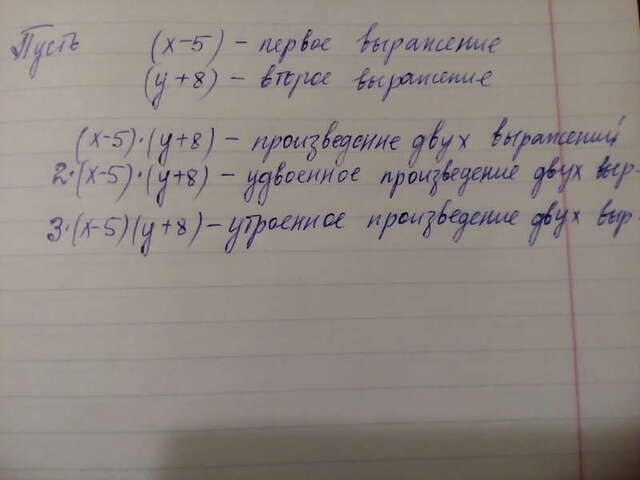 Пусть (x-5) - первое выражение
(y+8) - второе выражение
(x-5)·(y+8) - произведение двух выражений
2·(x-5)·(y+8) - удвоенное произведение двух выр-
3·(x-5)(y+8) - утроенное произведение двух выр.